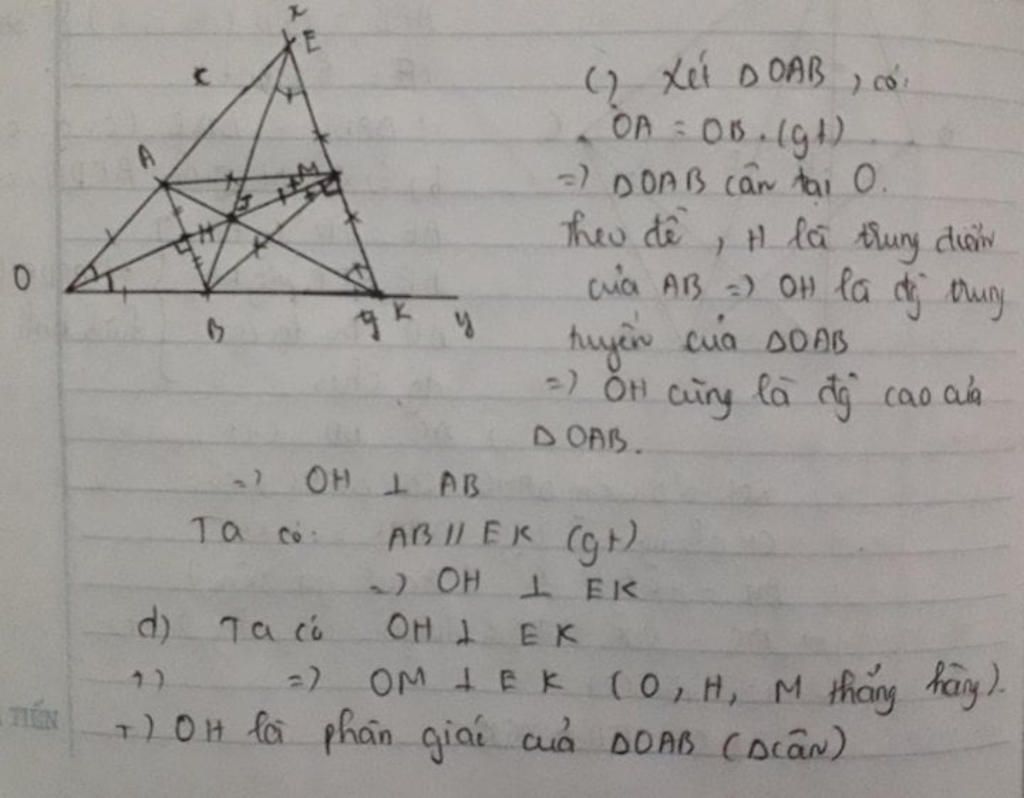 x
E
x
A
M
I
H
O
B
y K
y
c) Xét ΔOAB, có:
OA = OB. (gt)
=> ΔOAB cân tại O.
Theo đề, H là trung điểm
của AB => OH là đg trung
tuyến của ΔOAB
=> OH cũng là đg cao của
ΔOAB.
=> OH ⊥ AB
Ta có: AB // EK (gt)
=> OH ⊥ EK
d) Ta có OH ⊥ EK
+) => OM ⊥ EK (O, H, M thẳng hàng).
+) OH là phân giác của ΔOAB (Δcân)
TIẾN